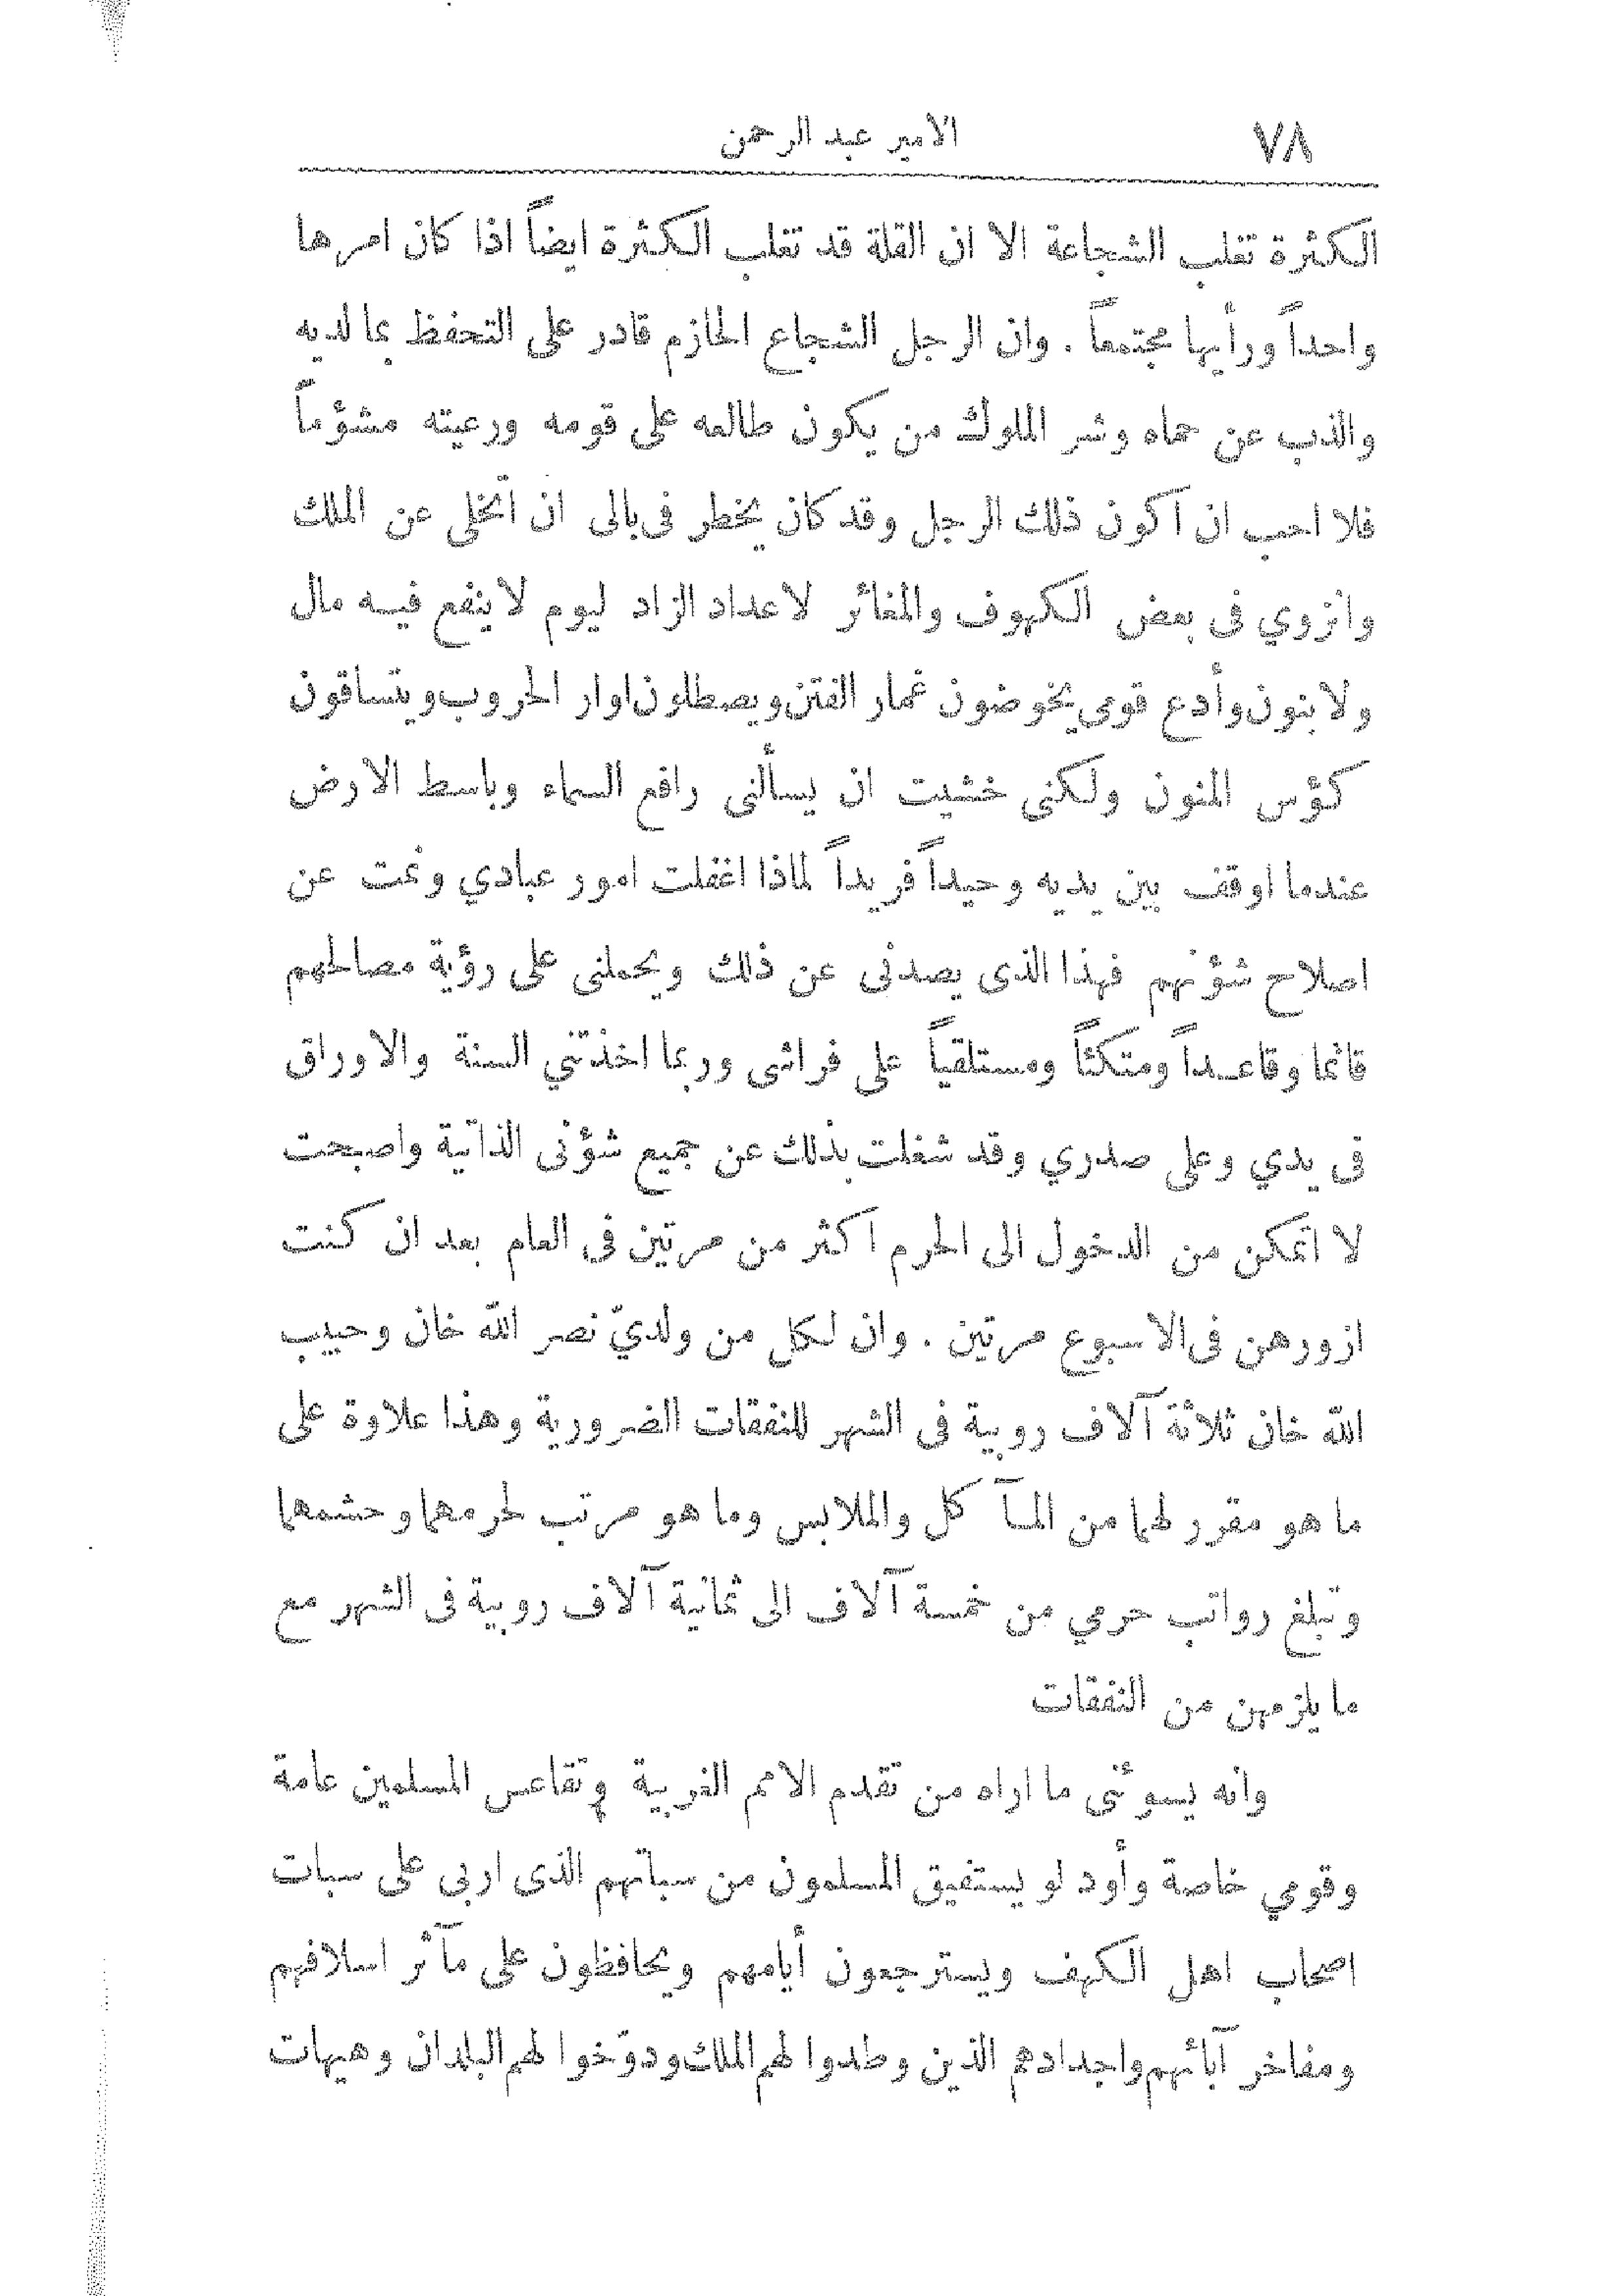 ٧٨ الامير عبد الرحمن
الكثرة تغلب الشجاعة الا ان القلة قد تغلب الكثرة ايضاً اذا كان امرها
واحداً ورأيها مجتمعاً . وان الرجل الشجاع الحازم قادر على التحفظ بما لديه
والذب عن حماه وشر الملوك من يكون طالعه على قومه ورعيته مشؤماً
فلا احب ان اكون ذلك الرجل وقد كان يخطر فى بالى ان اتخلى عن الملك
وانزوي فى بعض الكهوف والمغائر لاعداد الزاد ليوم لا ينفع فيه مال
ولا بنون وأدع قومى يخوضون غمار الفتن ويصطلون اوار الحروب ويتساقون
كؤس المنون ولكنى خشيت ان يسألنى رافع السماء وباسط الارض
عندما اوقف بين يديه وحيداً فريداً لماذا اغفلت امور عبادي ونمت عن
اصلاح شؤنهم فهذا الذى يصدنى عن ذلك ويحملنى على رؤية مصالحهم
قائما وقاعداً ومتكئاً ومستلقياً على فراشى وربما اخذتني السنة والاوراق
فى يدي وعلى صدري وقد شغلت بذلك عن جميع شؤنى الذاتية واصبحت
لا اتمكن من الدخول الى الحرم اكثر من مرتين فى العام بعد ان كنت
ازورهن فى الاسبوع مرتين . وان لكل من ولديّ نصر الله خان وحبيب
الله خان ثلاثة آلاف روبية فى الشهر للنفقات الضرورية وهذا علاوة على
ما هو مقرر لهما من المآكل والملابس وما هو مرتب لحرمهما وحشمهما
وتبلغ رواتب حرمي من خمسة آلاف الى ثمانية آلاف روبية فى الشهر مع
ما يلزمهن من النفقات
وانه يسوئنى ما اراه من تقدم الامم الغربية وتقاعس المسلمين عامة
وقومي خاصة وأود لو يستفيق المسلمون من سباتهم الذى اربى على سبات
اصحاب اهل الكهف ويسترجعون أيامهم ويحافظون على مآثر اسلافهم
ومفاخر آبائهم واجدادهم الذين وطدوا لهم الملك ودوّخوا لهم البلدان وهيهات